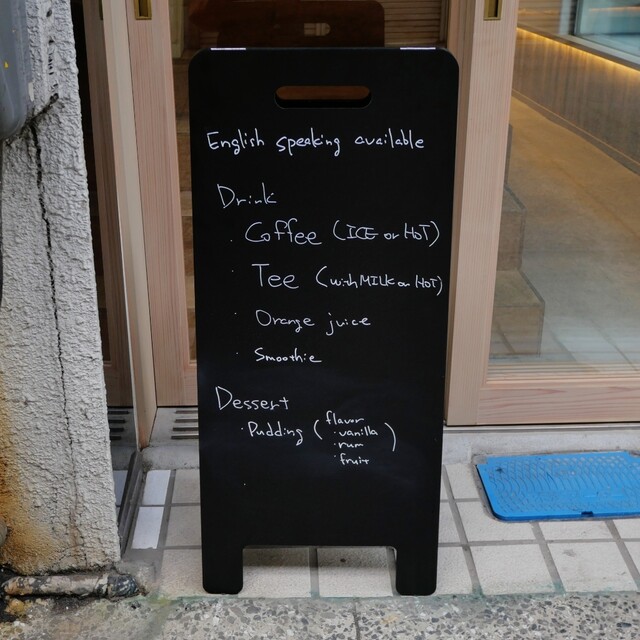 English speaking available
Drink
· Coffee (ICE or HOT)
· Tee (with MILK or HOT)
· Orange juice
· Smoothie
Dessert
· Pudding (flavor
· vanilla
· rum
· fruit)